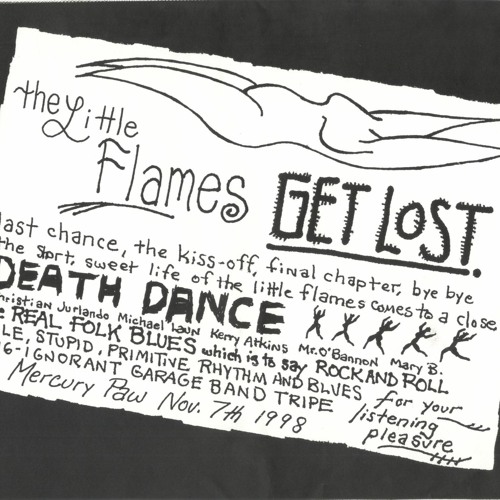 the Little
Flames
GET LOST.
last chance, the kiss-off, final chapter, bye bye
the short, sweet life of the little flames comes to a close
DEATH DANCE
Christian Jurlando Michael Kerry Atkins Mr. O'Bannon Mary B.
REAL FOLK BLUES which is to say ROCK AND ROLL
STUPID, PRIMITIVE RHYTHM AND BLUES
IGNORANT GARAGE BAND TRIPE
for your
listening
pleasure
Mercury Paw Nov. 7th 1998